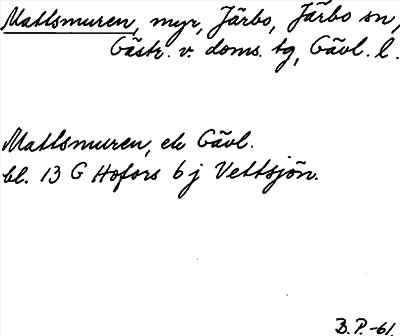 Mattsmuren, myr, Järbo, Järbo sn,
Gästr. v. doms. tg, Gävl. l.
Mattsmuren, ek Gävl.
bl. 13 G Hofors 6 j Vettsjön.
B.P.-61.